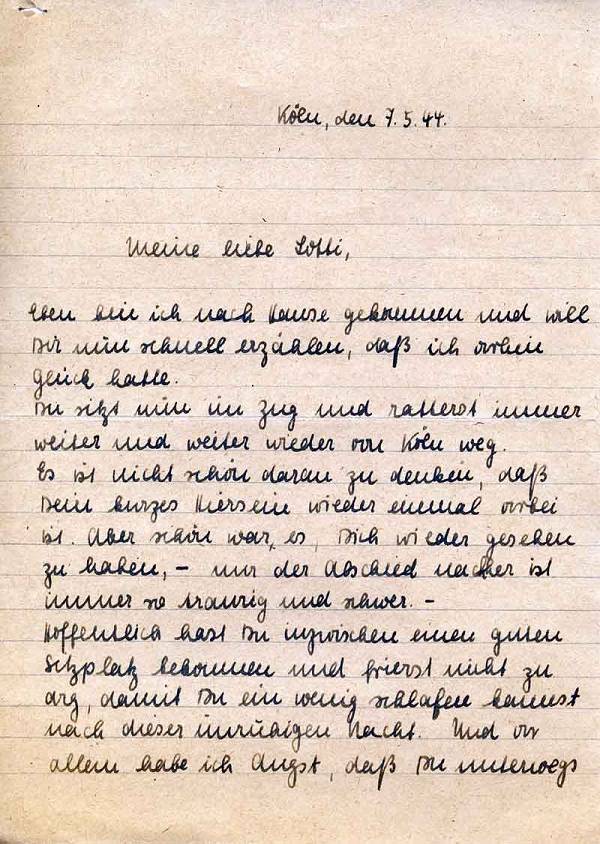 Köln, den 7.5.44.
Meine liebe Lotti,
Eben bin ich nach Hause gekommen und will
Dir nun schnell erzählen, daß ich vorhin
Glück hatte.
Du sitzt nun im Zug und ratterst immer
weiter und weiter wieder von Köln weg.
Es ist nicht schön daran zu denken, daß
Dein kurzes Hiersein wieder einmal vorbei
ist. Aber schön war es, Dich wieder gesehen
zu haben, – nur der Abschied nachher ist
immer so traurig und schwer. –
Hoffentlich hast Du inzwischen einen guten
Sitzplatz bekommen und frierst nicht zu
arg, damit Du ein wenig schlafen kannst
nach dieser unruhigen Nacht. Und vor
allem habe ich Angst, daß Du unterwegs